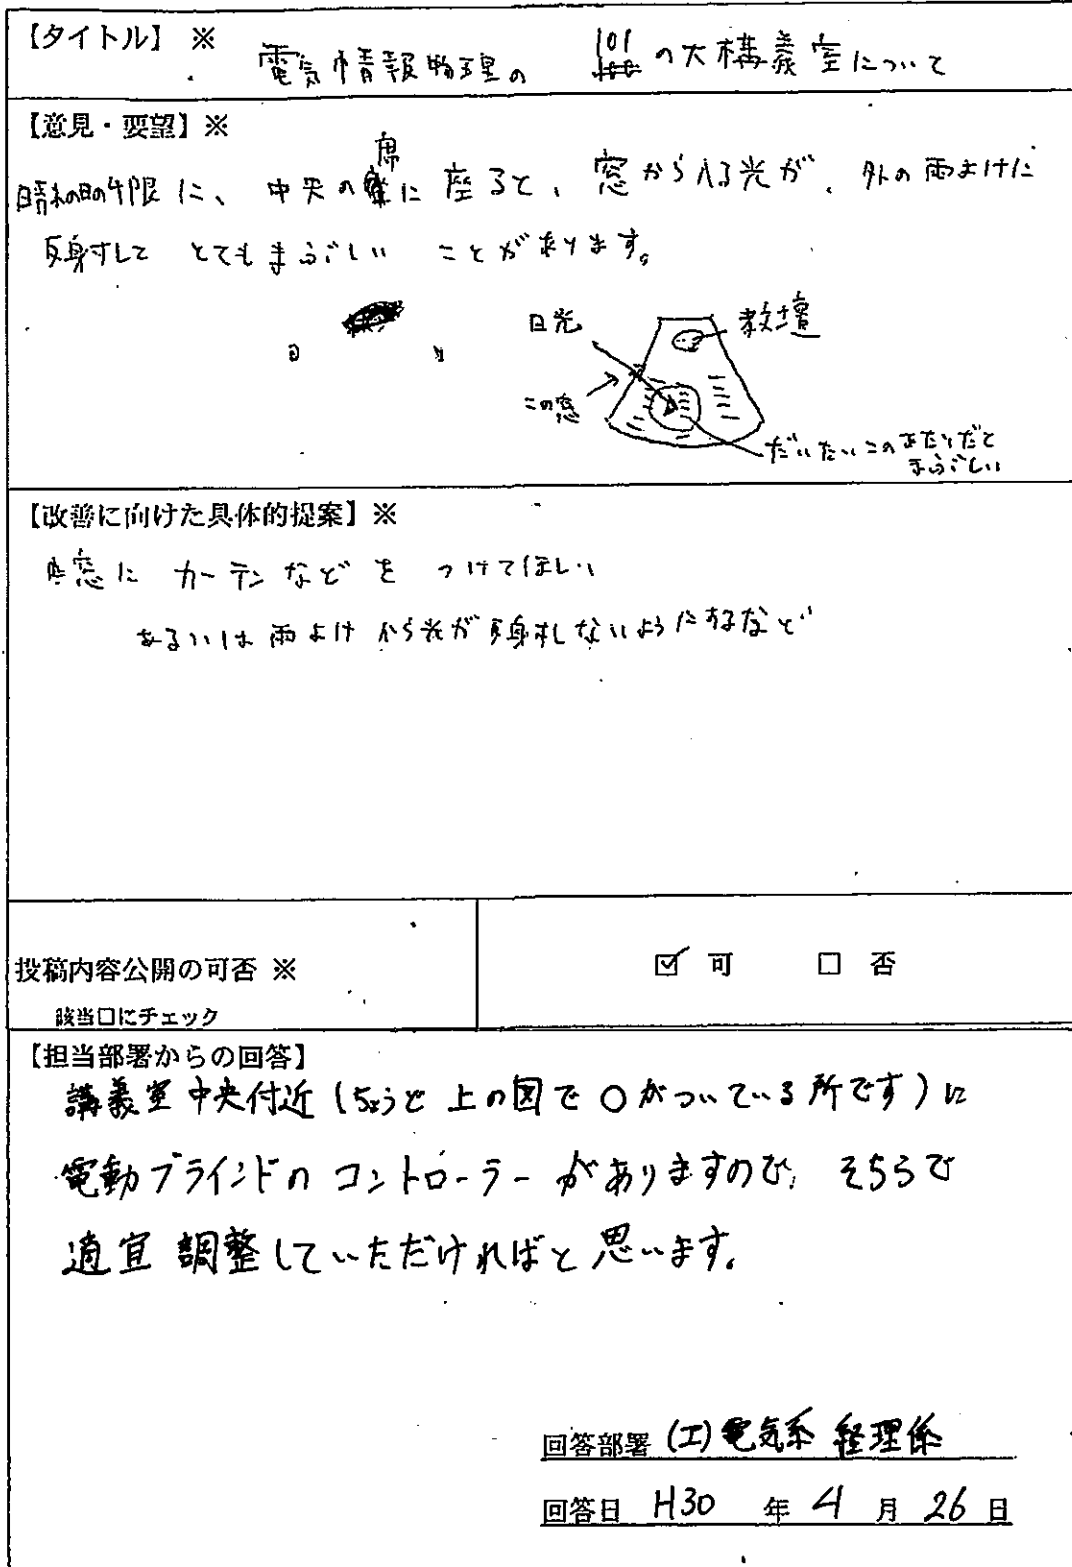 【タイトル】 ※
電気情報物理の 101の大構義室について
【意見・要望】※
晴れの日の午限に、中央の席に座ると、窓から入る光が、外の雨よけに
反射して とてもまぶしい ことがあります。
日光
教壇
この窓
だいたいこのあたりだと
まぶしい
【改善に向けた具体的提案】※
窓に カーテンなどを つけてほしい
あるいは雨よけから光が反射しないようにするなど
投稿内容公開の可否 ※
☑ 可 □ 否
該当□にチェック
【担当部署からの回答】
講義室中央付近(ちょうど上の図で○がついている所です)に
電動ブラインドのコントローラーがありますので、そちらで
適宜調整していただければと思います。
回答部署 (工)電気系 経理係
回答日 H30 年 4 月 26 日